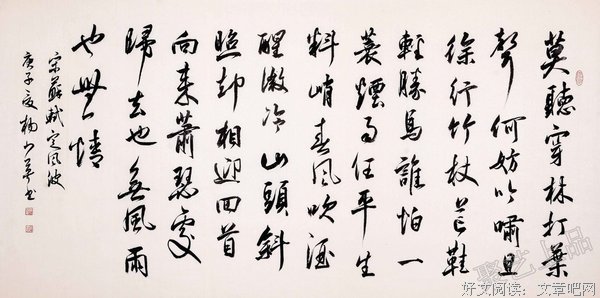 莫聽穿林打葉
聲何妨吟嘯且
徐行竹杖芒鞋
輕勝馬誰怕一
蓑煙雨任平生
料峭春風吹酒
醒微冷山頭斜
照卻相迎回首
向來蕭瑟處
歸去也無風雨
也無情
宋蘇軾定風波
庚子夏楊
好文阅读：文章吧网